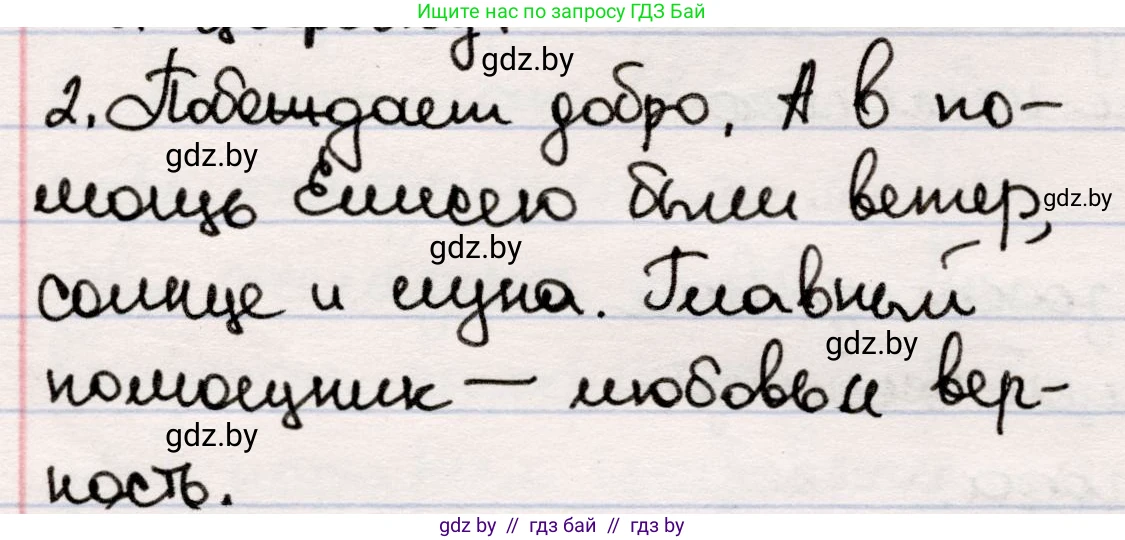 Ищите нас по запросу ГДЗ Бай
gdz.by
2. Побеждает добро. А в по-
gdz.by
мощь Елисею были ветер,
gdz.by
gdz.by
солнце и луна. Главный
gdz.by
помощник — любовь и вер-
gdz.by
ность.
gdz.by // гдз бай // гдз by